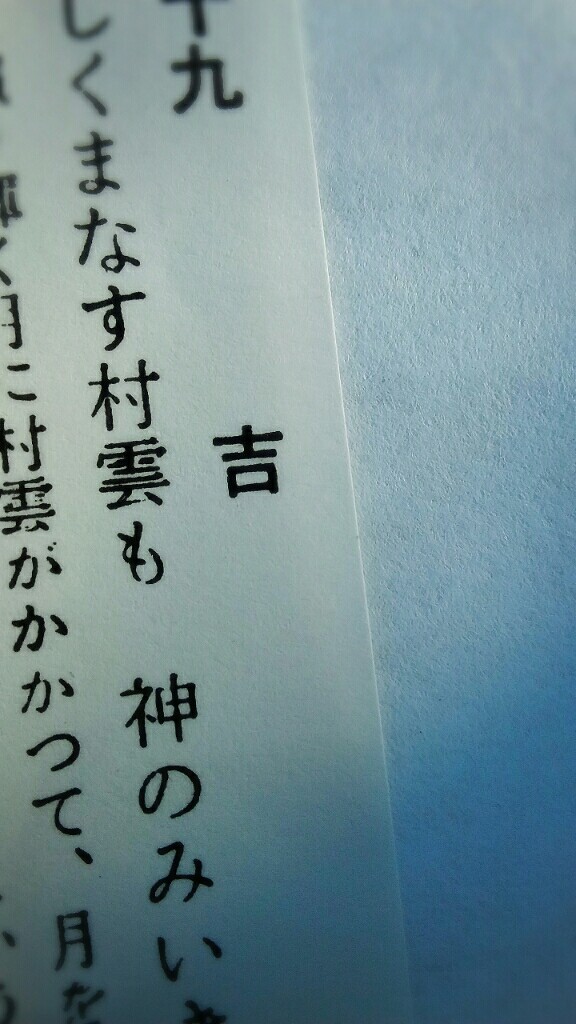 十九 吉
しくまなす村雲も 神のみい
輝く月に村雲がかかつて、月を